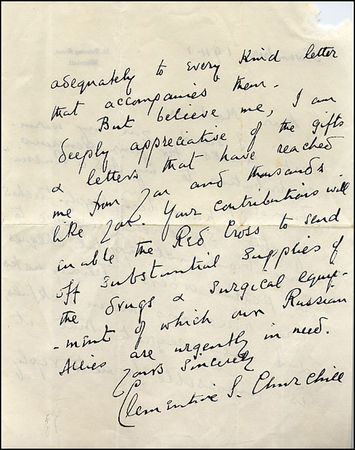 adequately to every kind letter
that accompanies them.
But believe me, I am
deeply appreciative of the gifts
& letters that have reached
me from you and thousands
like you. Your contributions will
enable the Red Cross to send
off substantial supplies of
the drugs & surgical equip-
-ment of which our Russian
Allies are urgently in need.
Yours sincerely
Clementine S. Churchill